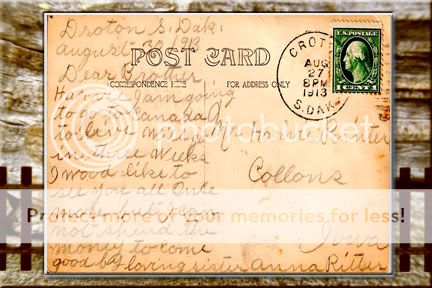 Droton S. Dak.
August 30 1913
POST CARD
CORRESPONDENCE HERE
FOR ADDRESS ONLY
CROT
AUG
27
8PM
1913
S.DAK.
U.S. POSTAGE
1 CENT 1
Dear Brother
I am going
to go to Canada
to live
in three Weeks
I wod like to
see you all Once
not spend the
money to come
good by loving sister Anna Ritter
Mr
Collons
Iowa
photobucket
Protect more of your memories for less!